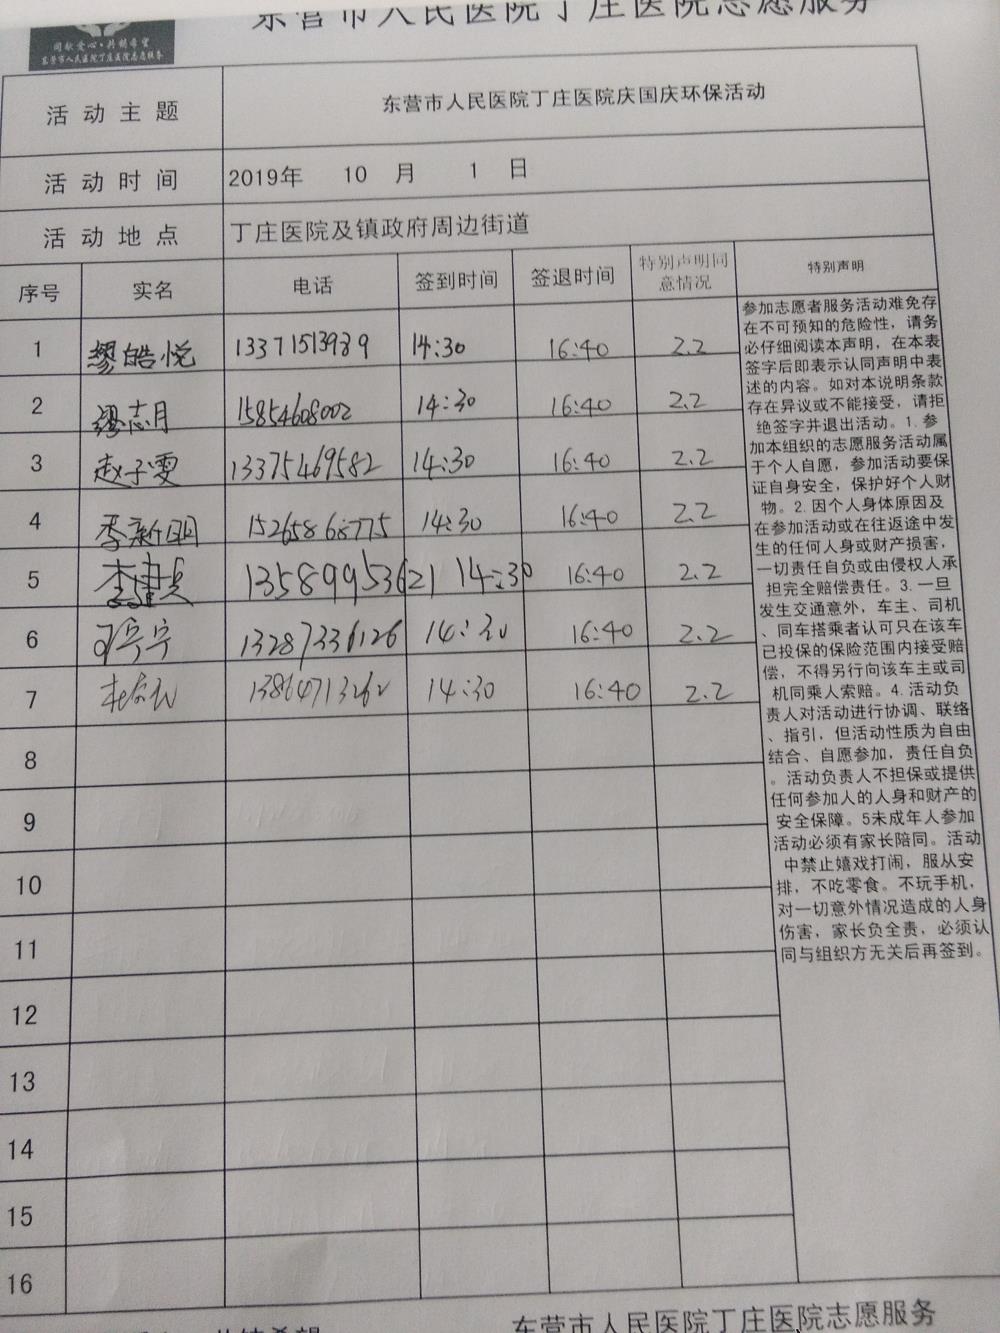 东营市人民医院丁庄医院志愿服务
同献爱心·共铸希望
东营市人民医院丁庄医院志愿服务
活动主题 东营市人民医院丁庄医院庆国庆环保活动
活动时间 2019年 10 月 1 日
活动地点 丁庄医院及镇政府周边街道
序号 实名 电话 签到时间 签退时间 特别声明同意情况 特别声明
1 缪皓悦 13371513939 14:30 16:40 2.2
2 缪志月 15854608002 14:30 16:40 2.2
3 赵子雯 13375469582 14:30 16:40 2.2
4 季新明 15265868775 14:30 16:40 2.2
5 135899953621 14:30 16:40 2.2
6 宁 13287336126 14:30 16:40 2.2
7 13864713262 14:30 16:40 2.2
8
9
10
11
12
13
14
15
16
参加志愿者服务活动难免存
在不可预知的危险性，请务
必仔细阅读本声明，在本表
签字后即表示认同声明中表
述的内容。如对本说明条款
存在异议或不能接受，请拒
绝签字并退出活动。1.参
加本组织的志愿服务活动属
于个人自愿，参加活动要保
证自身安全，保护好个人财
物。2.因个人身体原因及
在参加活动或在往返途中发
生的任何人身或财产损害，
一切责任自负或由侵权人承
担完全赔偿责任。3.一旦
发生交通意外，车主、司机
、同车搭乘者认可只在该车
已投保的保险范围内接受赔
偿，不得另行向该车主或司
机同乘人索赔。4.活动负
责人对活动进行协调、联络
、指引，但活动性质为自由
结合、自愿参加，责任自负
。活动负责人不担保或提供
任何参加人的人身和财产的
安全保障。5未成年人参加
活动必须有家长陪同。活动
中禁止嬉戏打闹，服从安
排，不吃零食。不玩手机，
对一切意外情况造成的人身
伤害，家长负全责，必须认
同与组织方无关后再签到。
东营市人民医院丁庄医院志愿服务